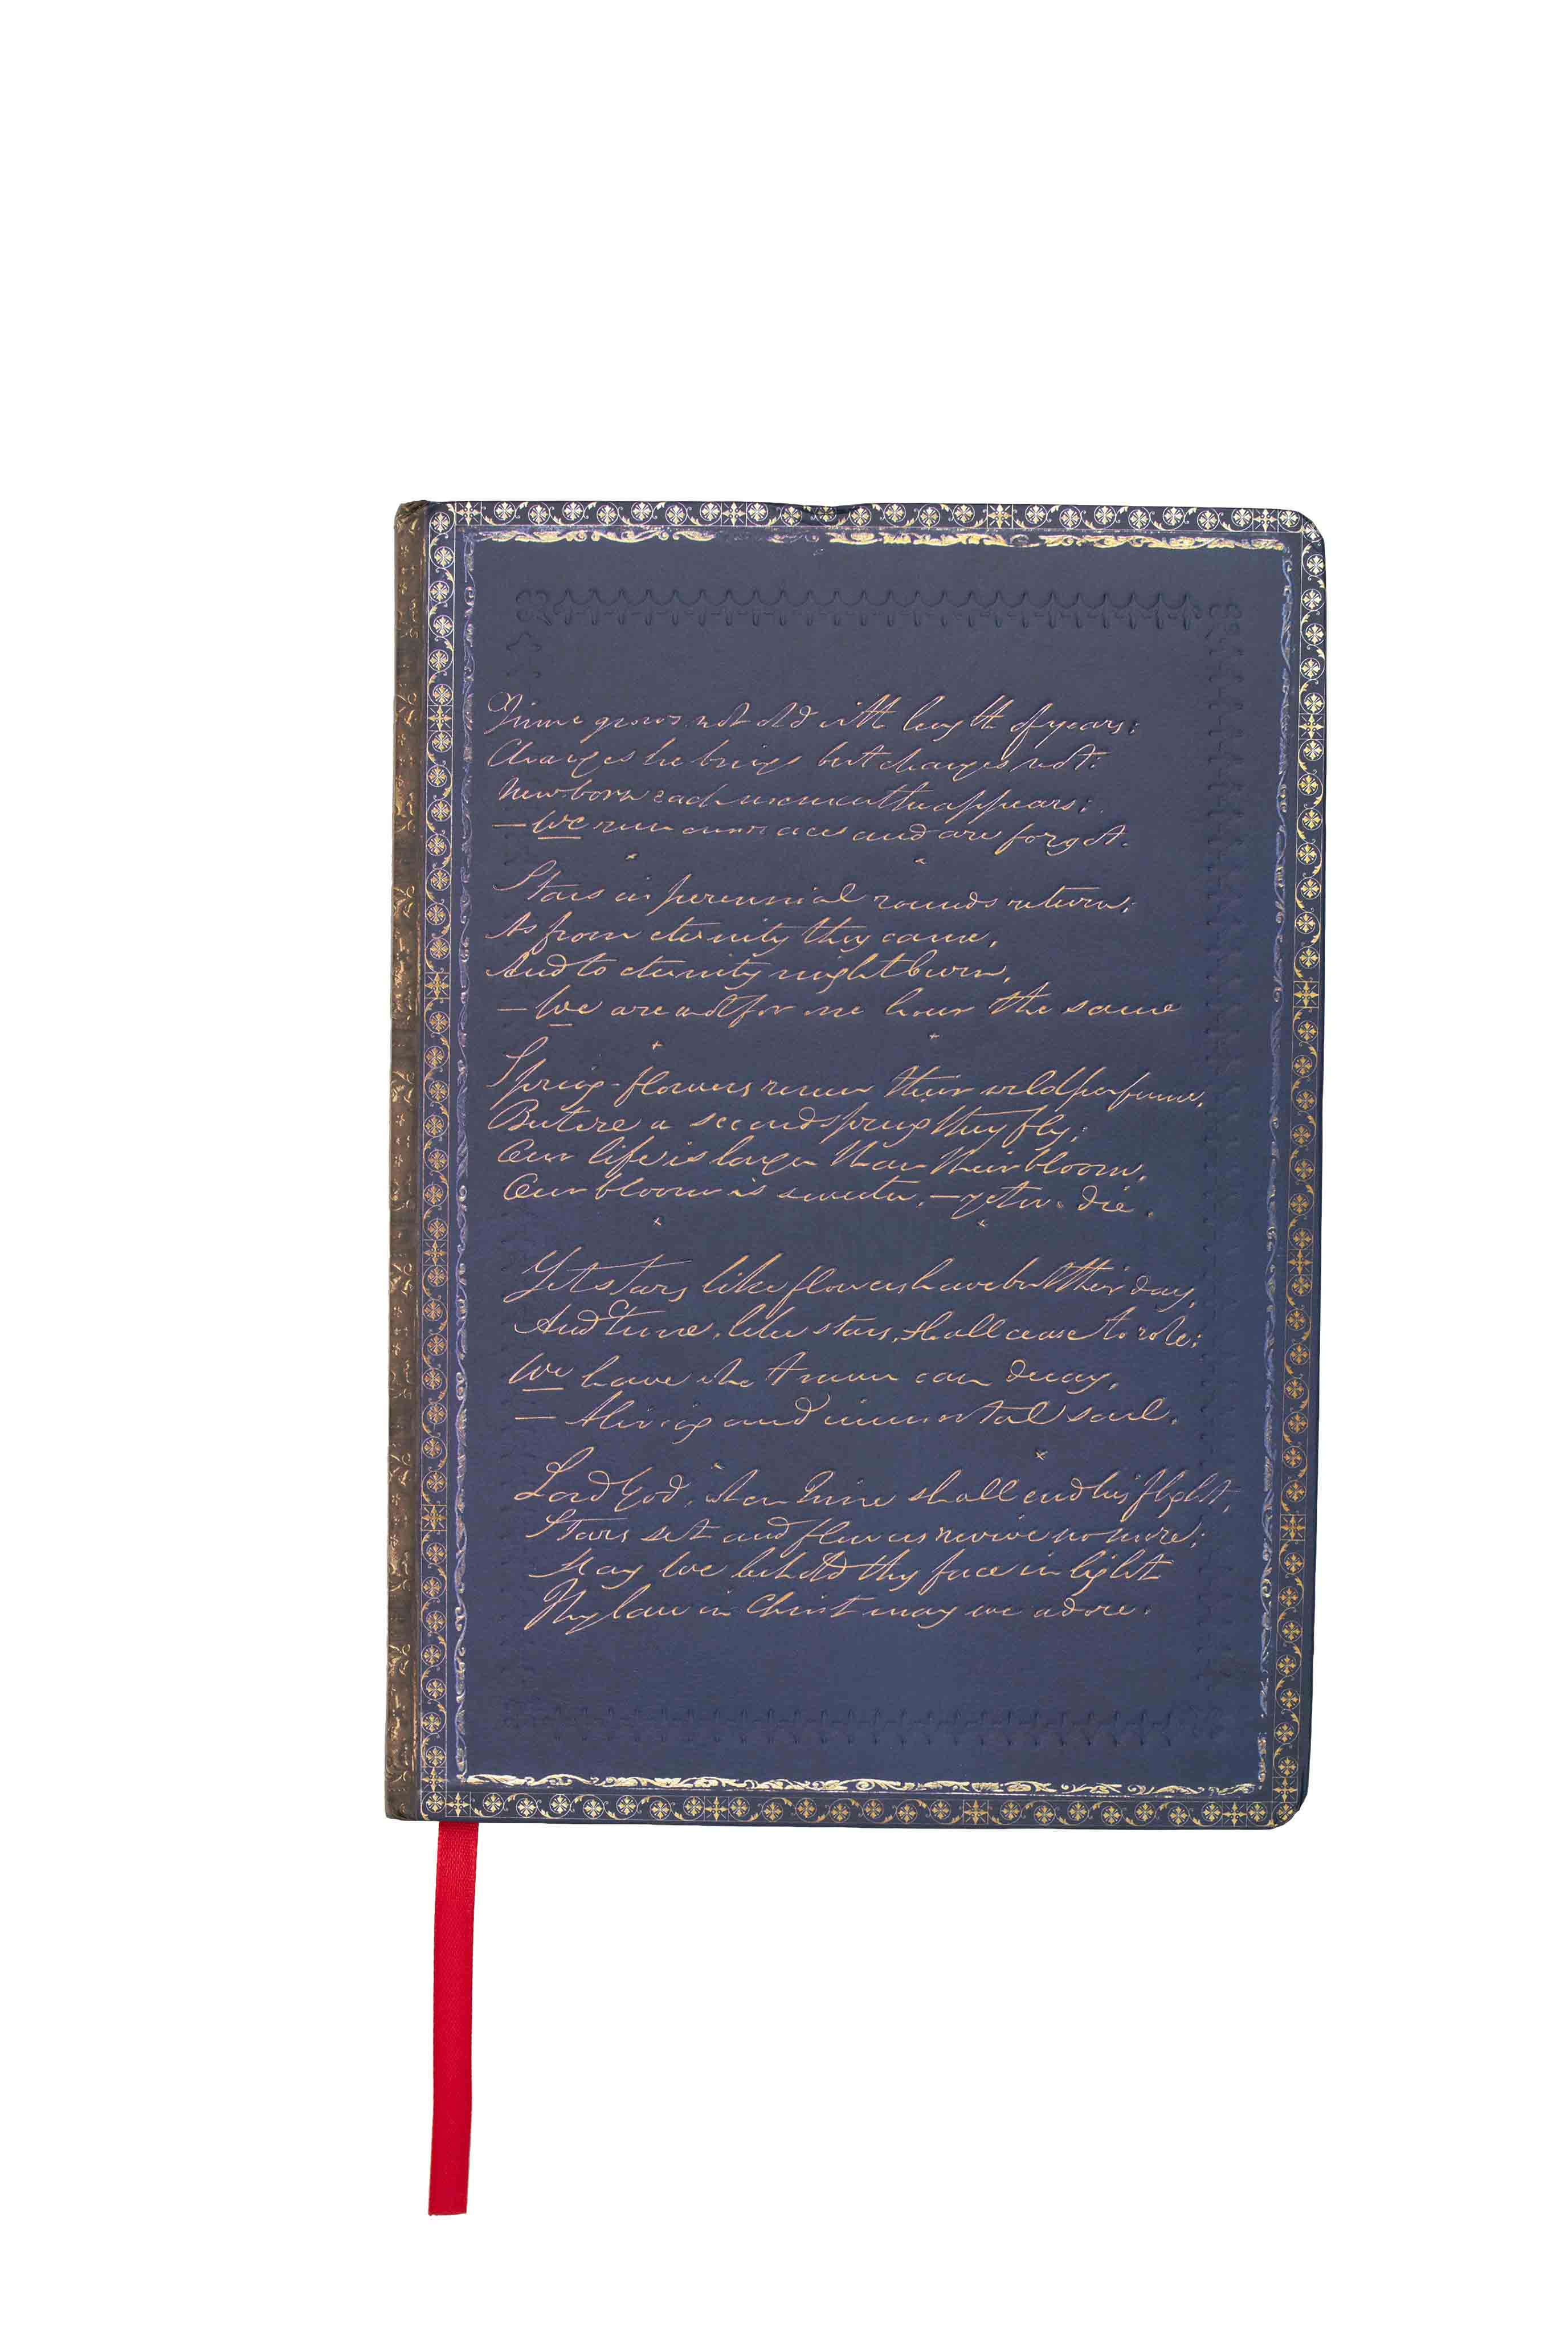 Time grows not old with length of years;
Changes he brings but changes not:
Newborn each moment he appears;
—We run our race and are forgot.
Stars in perennial rounds return,
As from eternity they came,
And to eternity might burn,
—We are not for one hour the same
Spring-flowers renew their wild perfume,
But ere a second spring they fly;
Our life is longer than their bloom,
Our bloom is sweeter,—yet we die.
Yet stars like flowers have but their day,
And time, like stars, shall cease to role;
We have what never can decay,
—A living and immortal soul.
Lord God, when Time shall end his flight,
Stars set and flowers revive no more;
May we behold thy face in light
Thy law in Christ may we adore.